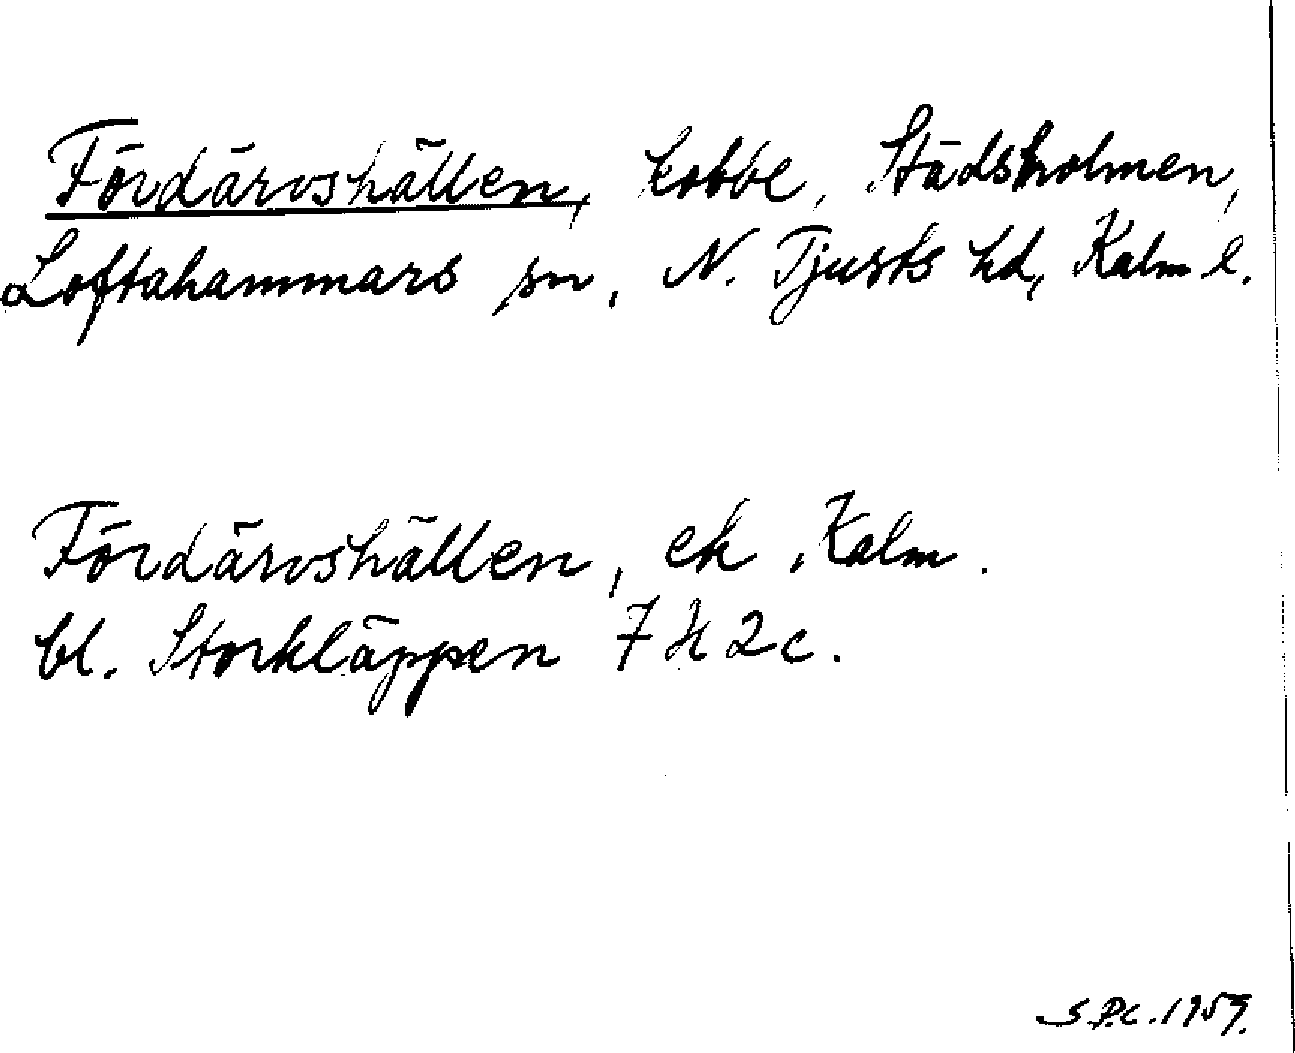 Fördärvshällen, kobbe, Städsholmen,
Loftahammars sn, N. Tjusts hd, Kalm l.
Fördärvshällen, ek, Kalm.
bl. Storkläppen 7H2c.
S.P.C. 1959.